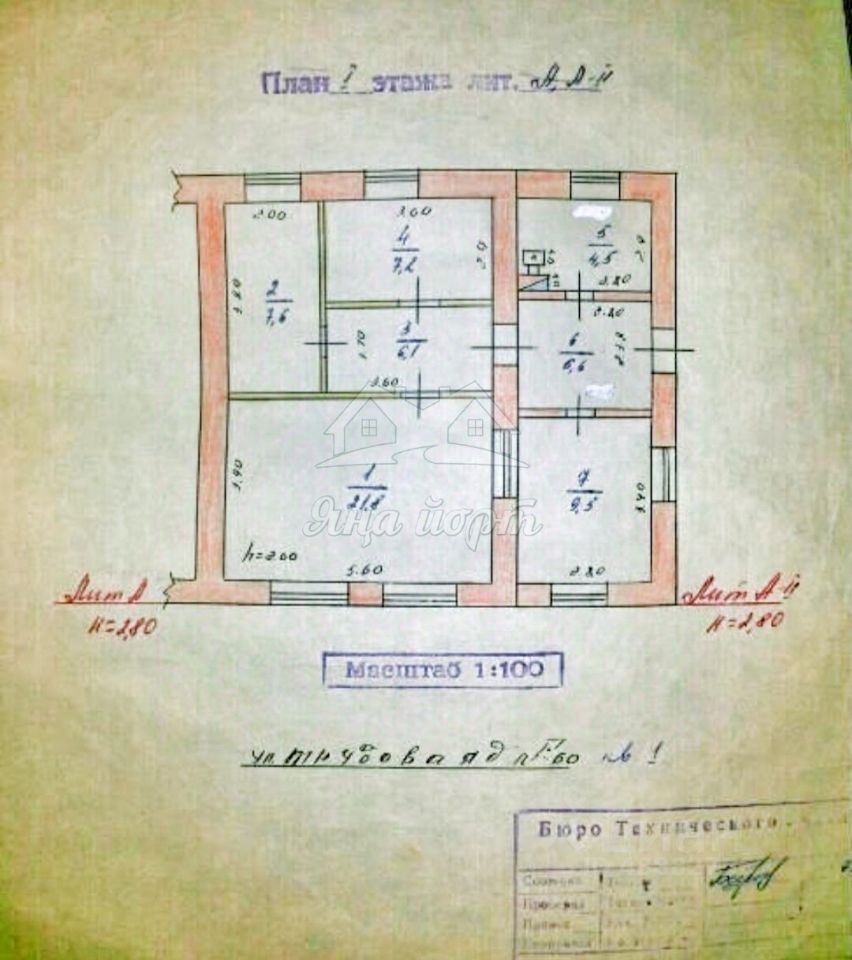 План I этажа лит. А, А-II
2.00
3.60
4
7,2
2.0
5
4,5
2.0
2.80
3.80
2
7,6
3
6,1
1.70
3.60
2.80
6
6,6
1
21,8
3.90
Яңа йорт
7
9,5
3.40
h=2.00
5.60
2.80
Лит А
н=2,80
Лит А-II
н=2,80
Масштаб 1:100
ул трубовая д №60 кв 1
Бюро Технического